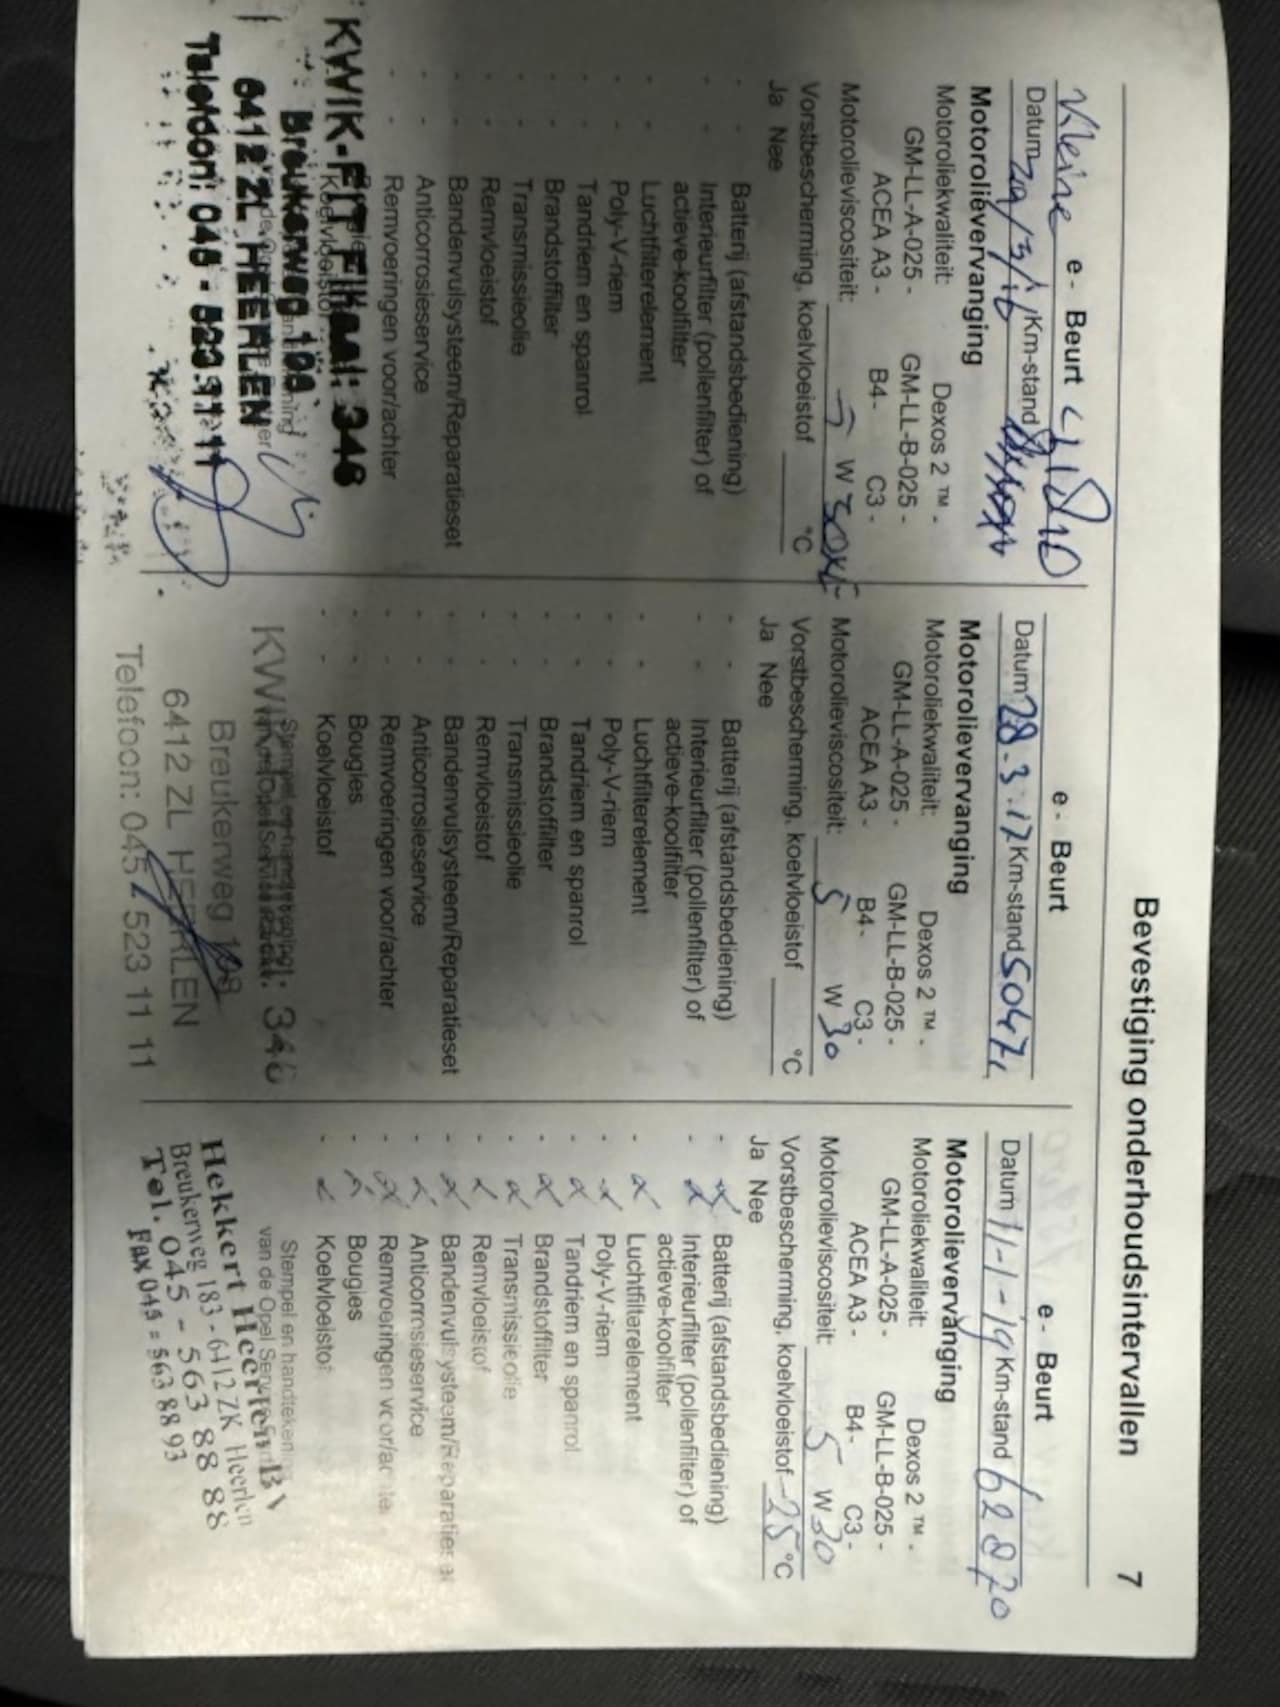 Bevestiging onderhoudsintervallen 7
Kleine e - Beurt
Datum 29/3/16 Km-stand
Motorolievervanging
Motoroliekwaliteit: Dexos 2 ™ -
GM-LL-A-025 - GM-LL-B-025 -
ACEA A3 - B4 - C3 -
Motorolieviscositeit: 5 W 30
Vorstbescherming, koelvloeistof °C
Ja Nee
- - Batterij (afstandsbediening)
- - Interieurfilter (pollenfilter) of
actieve-koolfilter
- - Luchtfilterelement
- - Poly-V-riem
- - Tandriem en spanrol
- - Brandstoffilter
- - Transmissieolie
- - Remvloeistof
- - Bandenvulsysteem/Reparatieset
- - Anticorrosieservice
- - Remvoeringen voor/achter
Koelvloeistof
KWIK-FIT Filiaal: 346
Breukerweg 198
6412 ZL HEERLEN
Telefoon: 045 - 523 11 11
e - Beurt
Datum 28-3-17 Km-stand 50474
Motorolievervanging
Motoroliekwaliteit: Dexos 2 ™ -
GM-LL-A-025 - GM-LL-B-025 -
ACEA A3 - B4 - C3 -
Motorolieviscositeit: 5 W 30
Vorstbescherming, koelvloeistof °C
Ja Nee
- - Batterij (afstandsbediening)
- - Interieurfilter (pollenfilter) of
actieve-koolfilter
- - Luchtfilterelement
- - Poly-V-riem
- - Tandriem en spanrol
- - Brandstoffilter
- - Transmissieolie
- - Remvloeistof
- - Bandenvulsysteem/Reparatieset
- - Anticorrosieservice
- - Remvoeringen voor/achter
- - Bougies
- - Koelvloeistof
346
Breukerweg 198
6412 ZL HEERLEN
Telefoon: 045 - 523 11 11
e - Beurt
Datum 11-1-19 Km-stand 62870
Motorolievervanging
Motoroliekwaliteit: Dexos 2 ™ -
GM-LL-A-025 - GM-LL-B-025 -
ACEA A3 - B4 - C3 -
Motorolieviscositeit: 5 W 30
Vorstbescherming, koelvloeistof -25 °C
Ja Nee
- x Batterij (afstandsbediening)
- x Interieurfilter (pollenfilter) of
actieve-koolfilter
- x Luchtfilterelement
- x Poly-V-riem
- x Tandriem en spanrol
- x Brandstoffilter
- x Transmissieolie
- x Remvloeistof
- x Bandenvulsysteem/Reparatieset
- x Anticorrosieservice
- x Remvoeringen voor/achter
- x Bougies
- x Koelvloeistof
Stempel en handtekening
van de Opel Service
Hekkert Heerlen BV
Breukerweg 183 - 6412 ZK Heerlen
Tel. 045 - 563 88 88
Fax 045 - 563 88 93